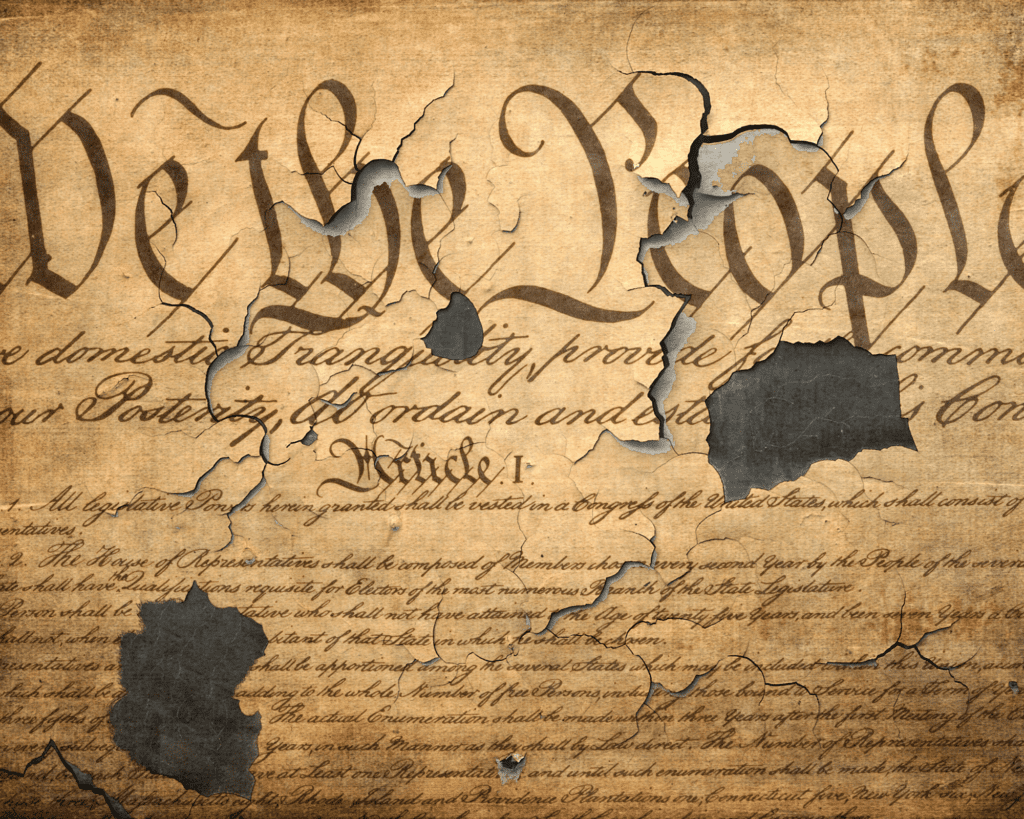 We the People
domestic Tranquility, provide commo
our Posterity, do ordain and esta s Con
Article I.
1. All legislative Powers herein granted shall be vested in a Congress of the United States, which shall consist of
entatives.
2. The House of Representatives shall be composed of Members chosen every second Year by the People of the several
shall have the Qualifications requisite for Electors of the most numerous Branch of the State Legislature.
Person shall be tative who shall not have attained the Age of twenty five Years, and been seven Years a
shall not, when bitant of that State in which he shall be chosen.
resentatives shall be apportioned among the several States which may be included within this Union,
which shall be adding to the whole Number of free Persons, including those bound to Service for a Term of
three fifths of The actual Enumeration shall be made within three Years after the first Meeting of the
every subsequ Years, in such Manner as they shall by Law direct. The Number of Representatives sha
and, but each ve at Least one Representative; and until such enumeration shall be made, the State of
three, Massachusetts eight, Rhode Island and Providence Plantations one, Connecticut five, New York Six, New